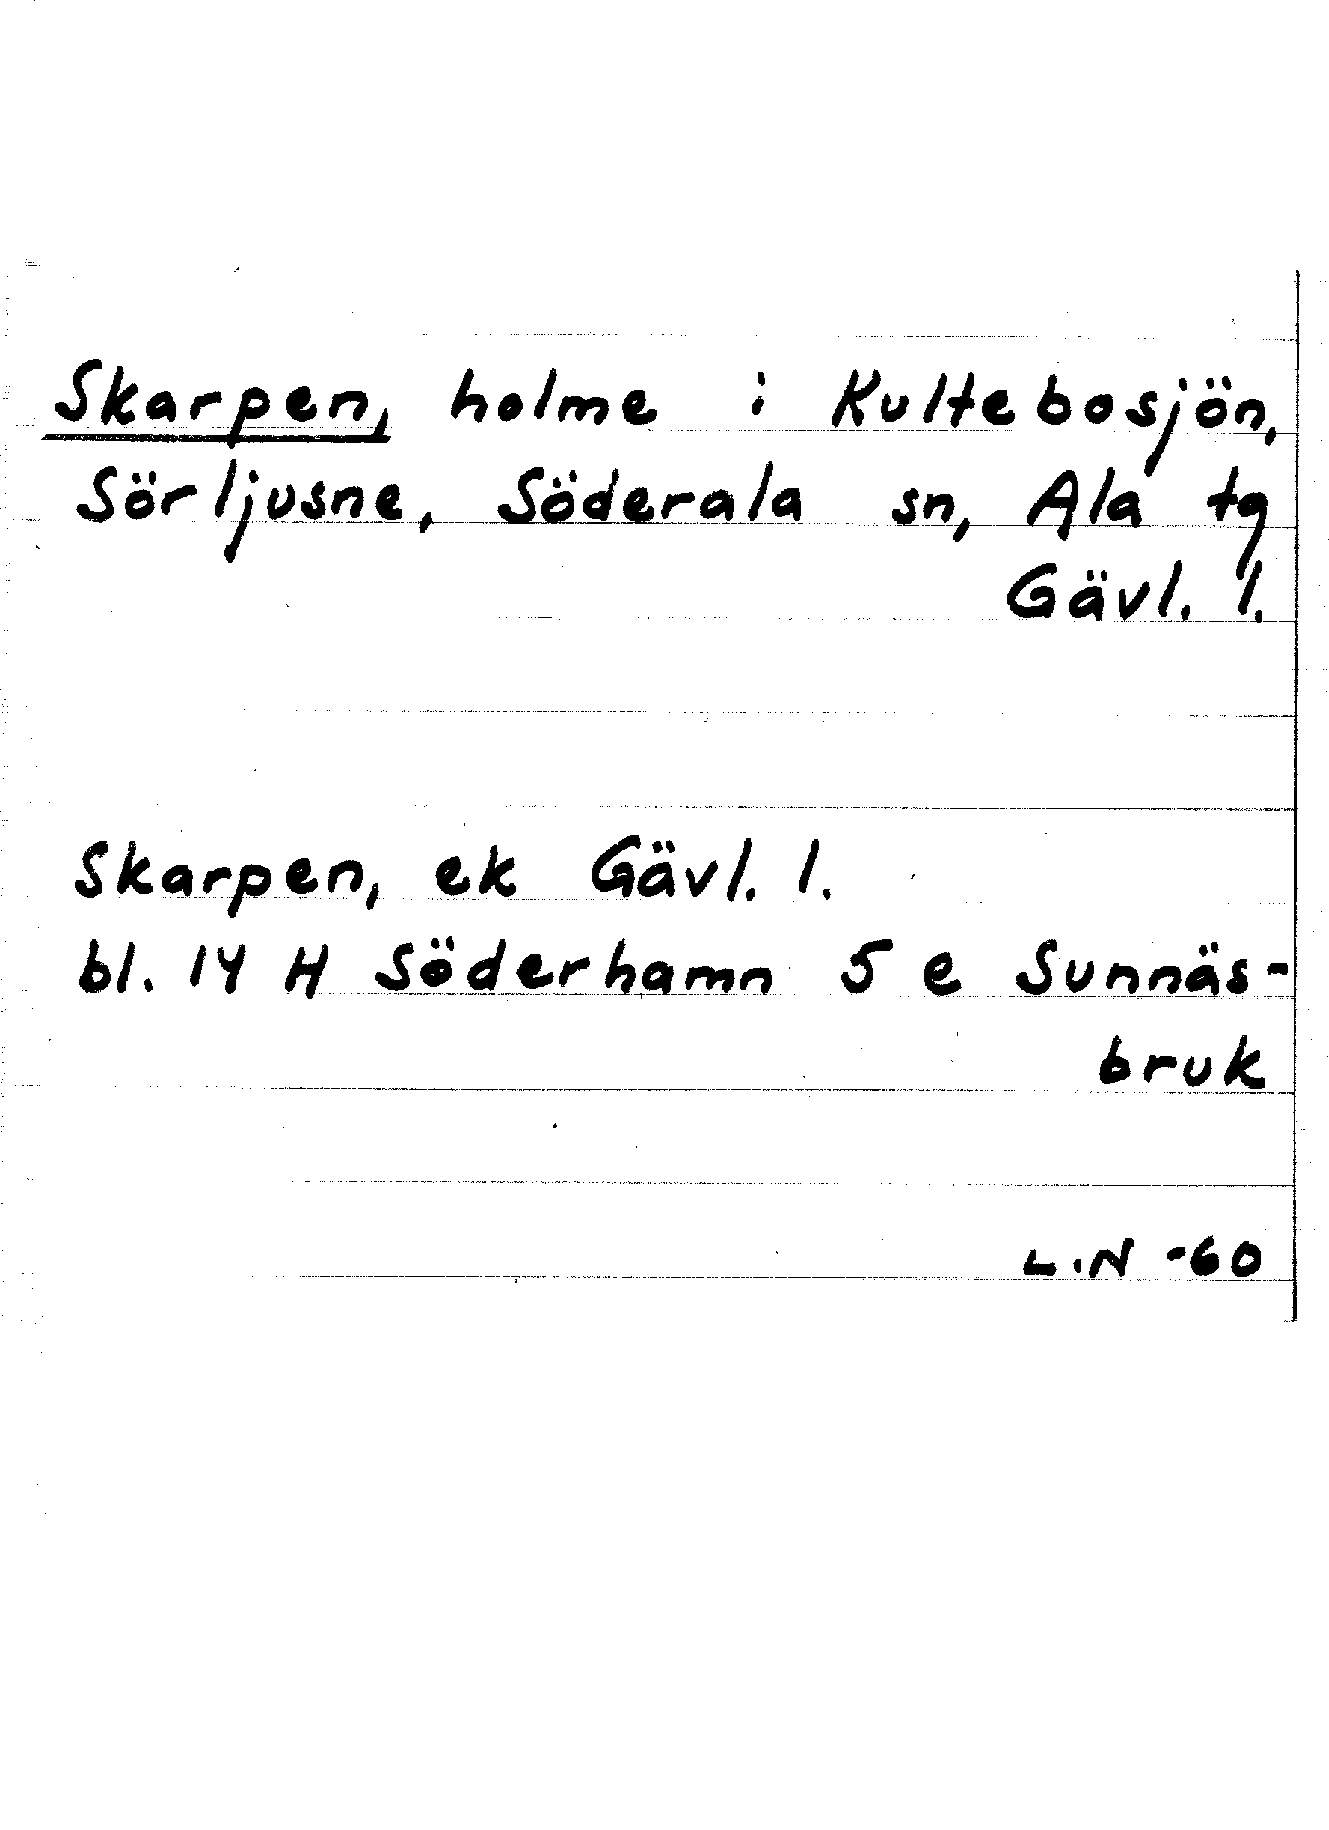 Skarpen, holme i Kultebosjön,
Sörljusne, Söderala sn, Ala tg
Gävl. l.
Skarpen, ek Gävl. l.
bl. 14 H Söderhamn 5 e Sunnäs-
bruk
L.N -60